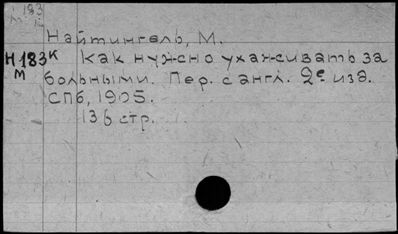 183
Найтингель, М.
Н 183 к Как нужно ухаживать за
М больными. Пер. с англ. 2е изд.
СПб, 1905.
136 стр.